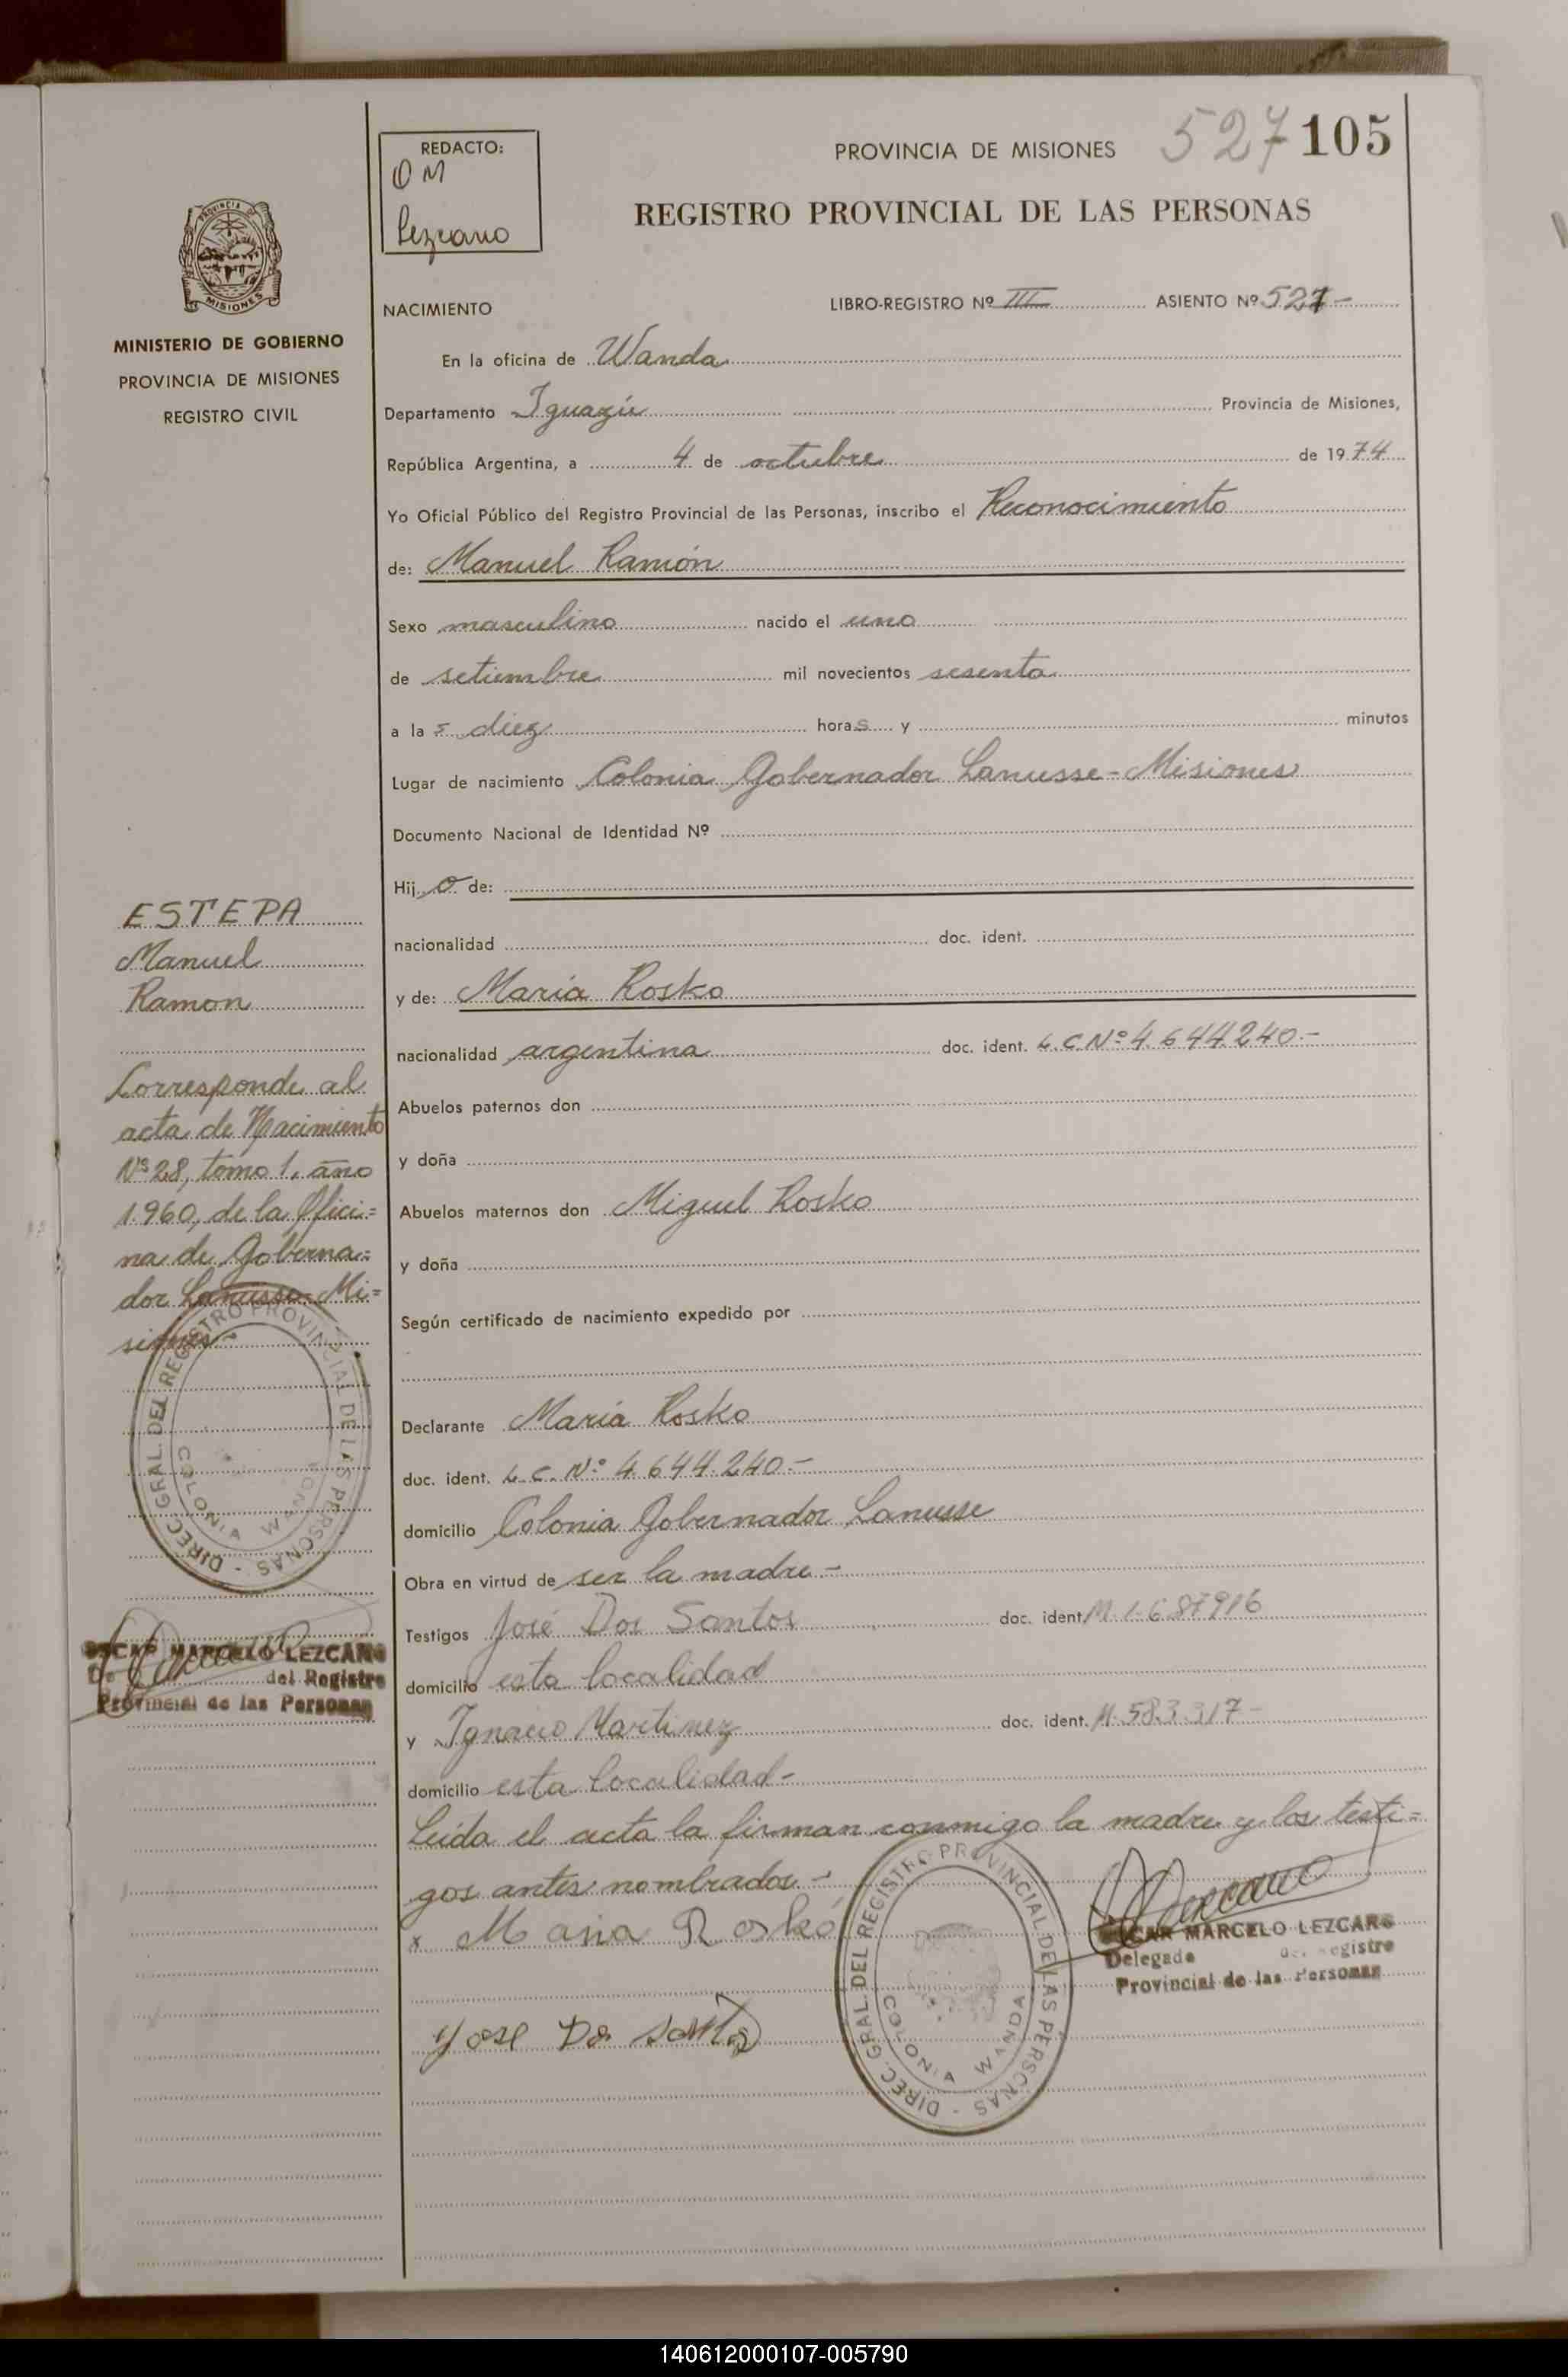 REDACTO:
OM
Lezcano
PROVINCIA DE MISIONES
527 105
REGISTRO PROVINCIAL DE LAS PERSONAS
PROVINCIA DE
MISIONES
MINISTERIO DE GOBIERNO
PROVINCIA DE MISIONES
REGISTRO CIVIL
NACIMIENTO
LIBRO-REGISTRO Nº III ASIENTO Nº 527-
En la oficina de Wanda
Departamento Iguazú Provincia de Misiones,
República Argentina, a 4 de octubre de 1974
Yo Oficial Público del Registro Provincial de las Personas, inscribo el Reconocimiento
de: Manuel Ramón
Sexo masculino nacido el uno
de setiembre mil novecientos sesenta
a la s diez horas y minutos
Lugar de nacimiento Colonia Gobernador Lanusse-Misiones
Documento Nacional de Identidad Nº
Hij o de:
nacionalidad doc. ident.
y de: María Rosko
nacionalidad argentina doc. ident. L.C Nº 4.644.240.-
Abuelos paternos don
y doña
Abuelos maternos don Miguel Rosko
y doña
Según certificado de nacimiento expedido por
Declarante María Rosko
doc. ident. L.C. Nº 4.644.240.-
domicilio Colonia Gobernador Lanusse
Obra en virtud de ser la madre.-
Testigos José Dos Santos doc. ident. M. 1.687916
domicilio esta localidad
y Ignacio Martinez doc. ident. M. 583317-
domicilio esta localidad-
Leída el acta la firman conmigo la madre y los testi=
gos antes nombrados.-
x Maria Roskó
Yose Do Santos
ESTEPA
Manuel
Ramon
Corresponde al
acta de Nacimiento
Nº 28, tomo 1, año
1.960, de la Ofici=
na de Goberna=
dor Lanusse-Mi=
siones-
DIREC. GRAL. DEL REGISTRO PROVINCIAL DE LAS PERSONAS -
COLONIA WANDA
Lezcano
OSCAR MARCELO LEZCANO
del Registro
Provincial de las Personas
DIREC. GRAL. DEL REGISTRO PROVINCIAL DE LAS PERSONAS -
COLONIA WANDA
Lezcano
OSCAR MARCELO LEZCANO
Delegado del Registro
Provincial de las Personas
140612000107-005790